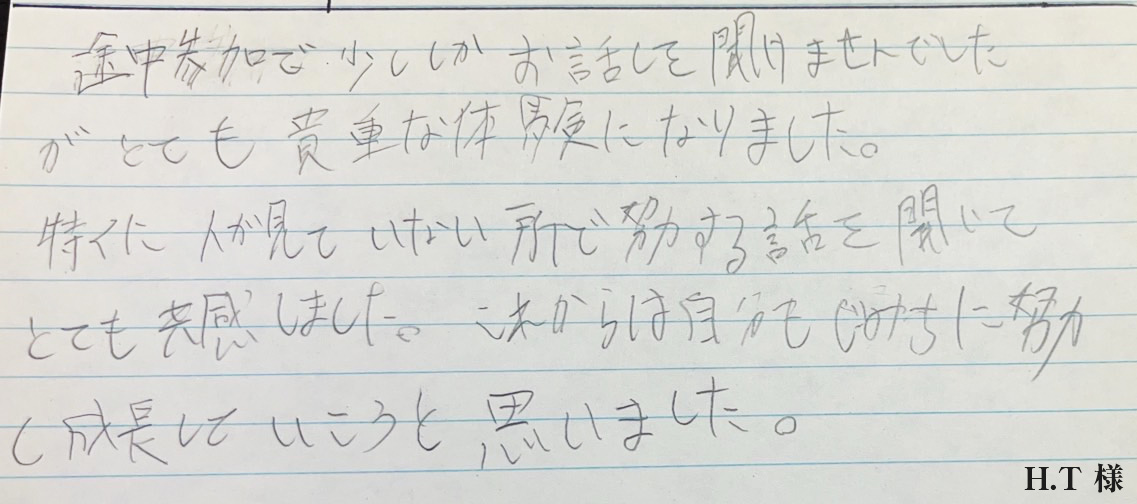 途中参加で少ししか お話しを聞けませんでした
がとても 貴重な体験になりました。
特くに 人が見て いない所で努力する話を聞いて
とても共感しました。これからは自分もじみちに努力
し成長して いこうと 思いました。
H.T 様